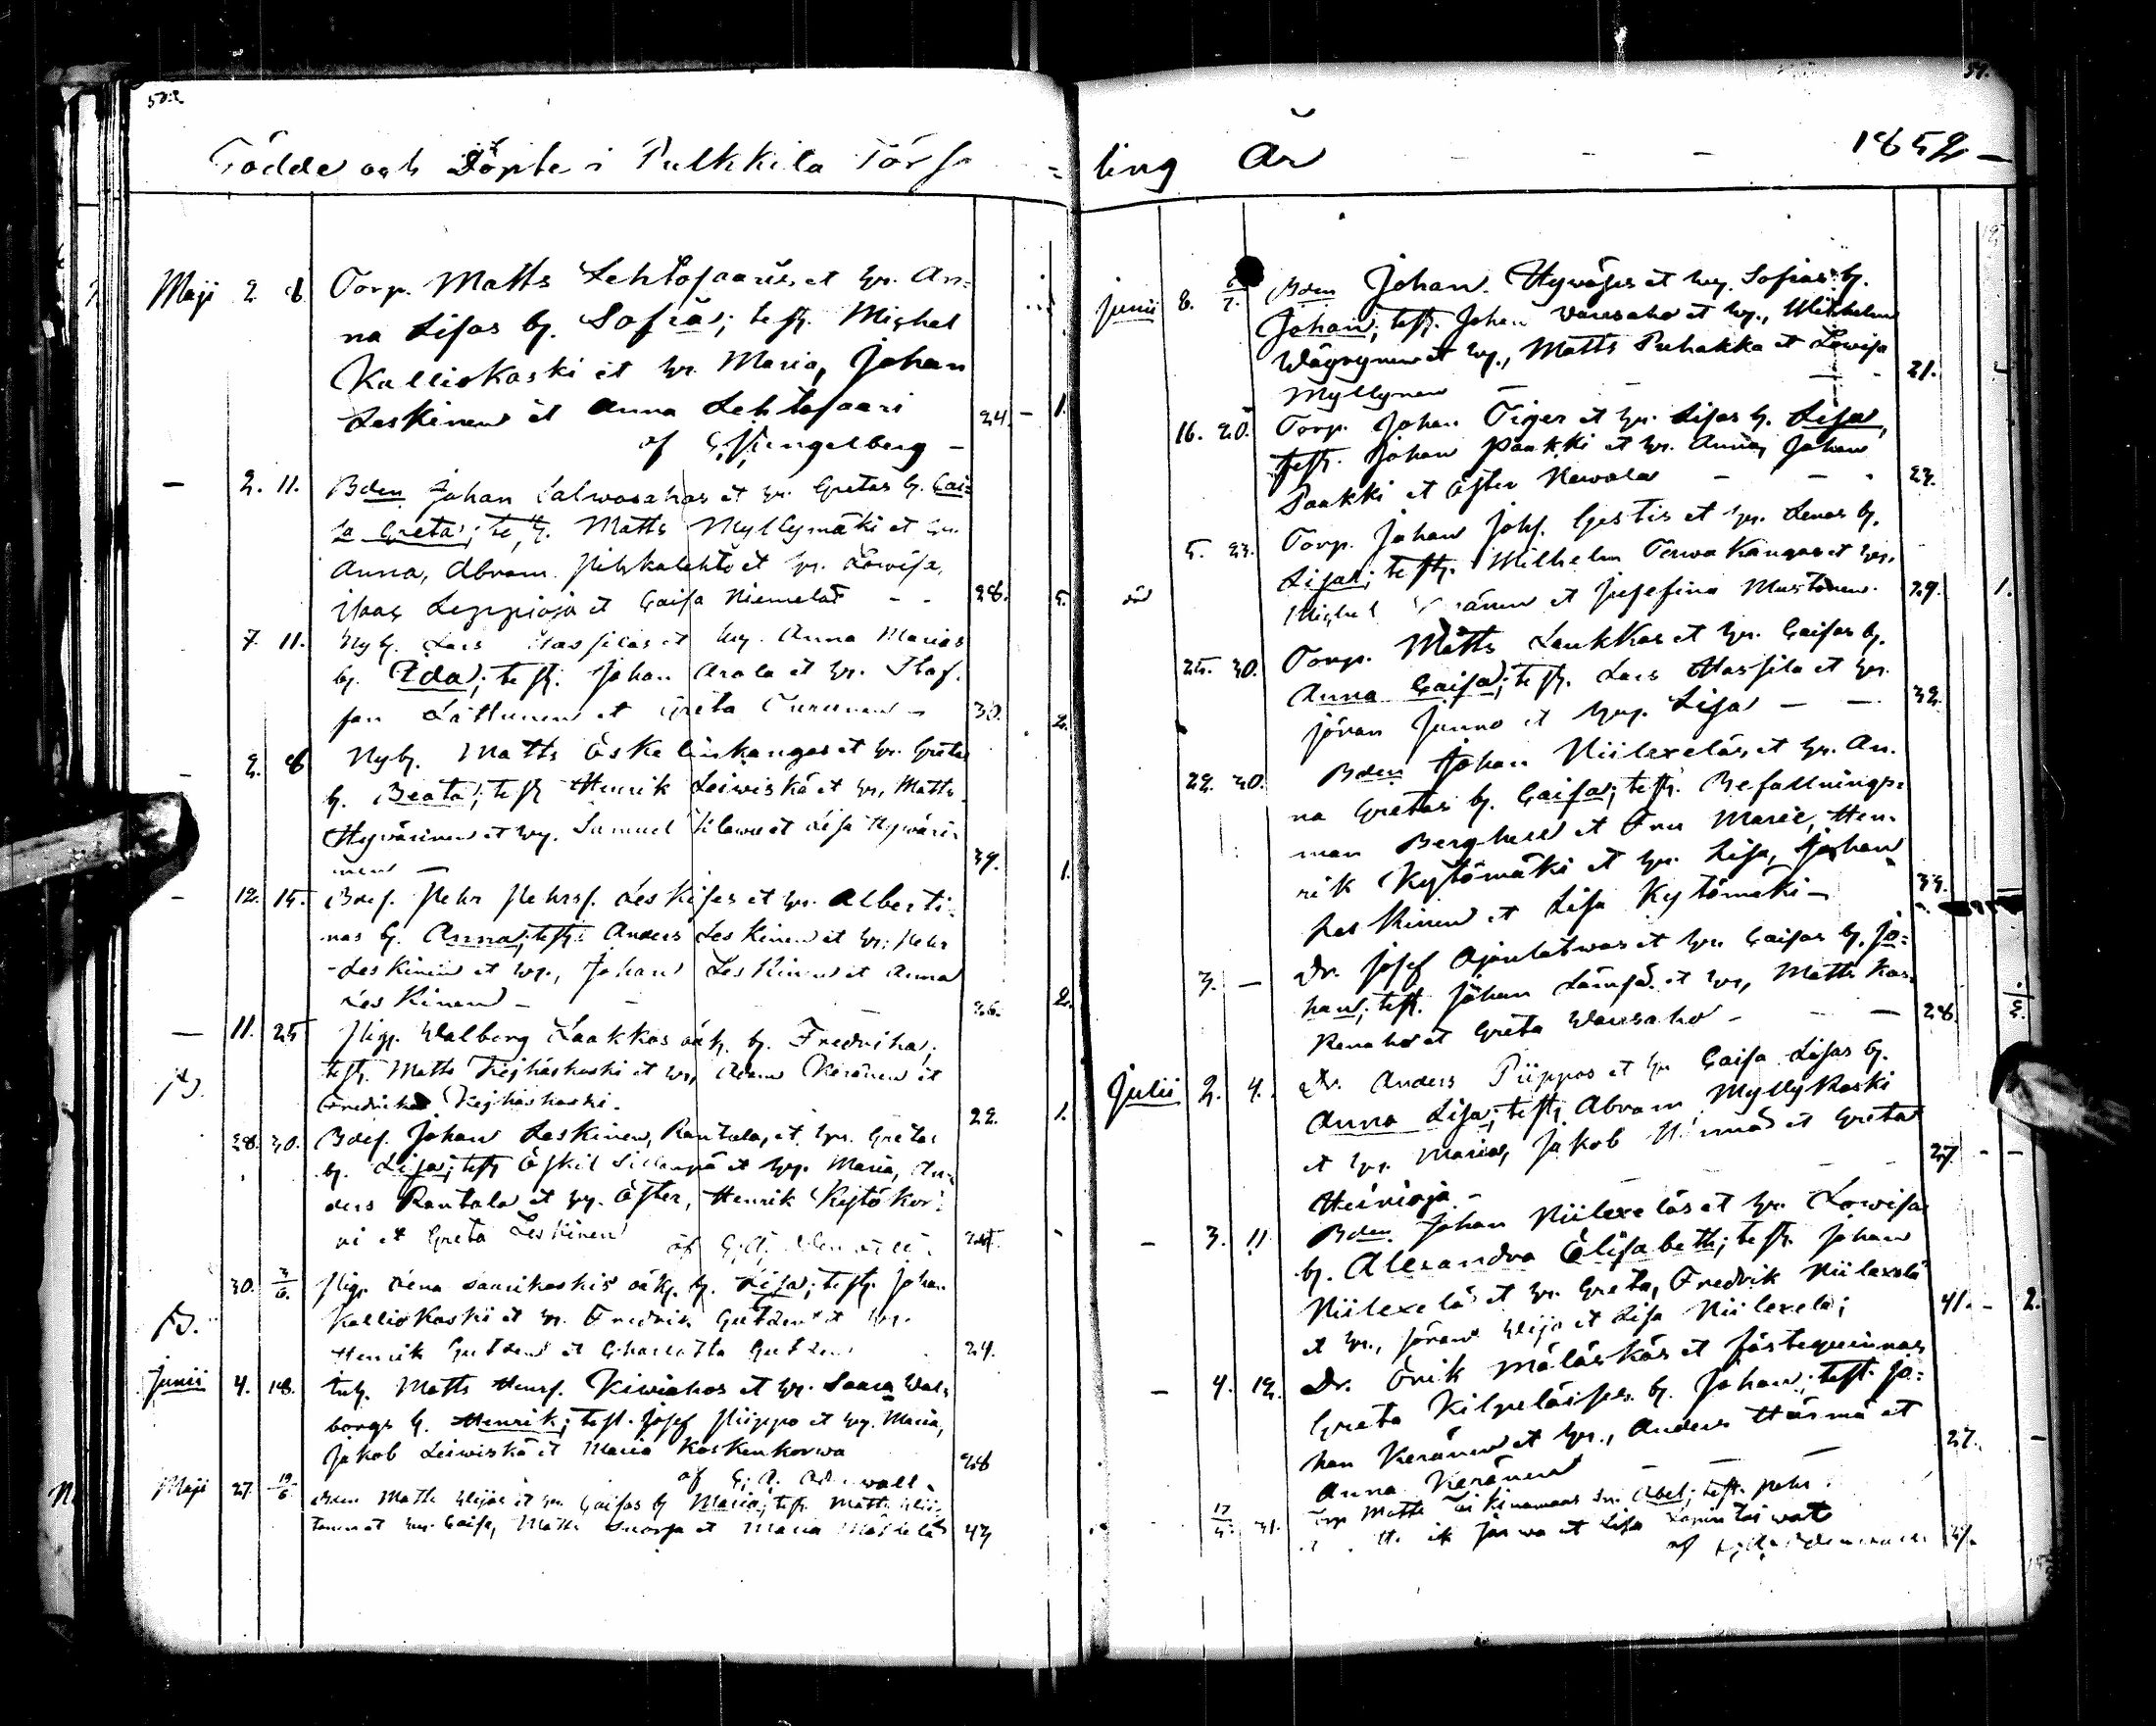 Födde och Döpte i Pulkkila Förs=
Maji 2 8 Torp. Matts Lehtosaaris et hr. An=
na Lisas b. Sofia; test. Michel
Kalliokoski et hr. Maria, Johan
Leskinen et Anna Lehtosaari 24. - 1.
af Stengelberg -
- 2. 11. Bden Johan et hr. Gretas b. Cai=
sa Greta; test. Matts Myllymäki et hr.
Anna, Abram Pihkalehto et hr. Lowisa,
Isaac Leppioja et Caisa Niemelä - - 28. 5.
7. 11. Nyb. Lars Hassilas et hr. Anna Marias
b. Ida; test. Johan Arola et hr. Staf.
fan Lättunen et Greta Turunen - 30. 2.
- 3. 8 Nyb. Matts Eskelinkangas et hr. Gretas
b. Beata; test. Henrik Leiwiskä et hr., Matts
Hyvärinen et hr. Samuel et Lisa Hyväri-
nen - 39. 1.
- 12. 15. Bdes. Pehr Pehrss. Leskises et hr. Alberti-
nas b. Anna; test. Anders Leskinen et hr. Pehr
Leskinen et hr., Johan Leskinen et Anna
Leskinen - 26. 2.
- 11. 25 Pig. Walborg Laakkos oäk. b. Fredrika;
test. Matts et hr, Adam Keränen et
Fredrika 22. 1.
28. 30. Bdes. Johan Leskinen, Rantala, et hr. Gretas
b. Lisa; test. Eskil Sillanpä et hr. Maria, An-
ders Rantala et hr. Ester, Henrik Kytökor-
pi et Greta Leskinen
af G. A.
30. 3/6. Pig. Lena Saarikoskis oäk. b. Lisa; test. Johan
Kalliokoski et hr. Fredrik Gutzen et hr.
Henrik Gutzen et Charlotta Gutzen 24.
Junii 4. 18. Inh. Matts Henrs. Kiviahos et hr. Saara Wal-
borgs b. Henrik; test. Josef Piippo et hr. Maria,
Jakob Leiwiskä et Maria Koskenkorwa 28
af G. A.
Maji 27. 19/6. Bden Matts et hr. Caisas b. Maria; test. Matts
et hr. Caisa, Matts Suorsa et Maria 43
ling År - - - 1852 -
Junii 8. Bden Johan Hyväses et hr. Sofias b.
Johan; test. Johan Varesaho et hr., Wilhelm
Wäyrynen et hr., Matts Puhakka et Lowisa
Myllynen 21.
16. 20. Torp. Johan Tiger et hr. Lisas b. Lisa,
test. Johan Paakki et hr. Anna, Johan
Paakki et Ester Newala - - 23.
5. 23. Torp. Johan Johs. Gestis et hr. Lenas b.
Lisa; test. Wilhelm Terwakangas et hr.
Michel et Josefina Mustonen. 29. 1.
25. 30. Torp. Matts Laukkas et hr. Caisas b.
Anna Caisa; test. Lars Hassila et hr.
Jöran Junno et hr. Lisa - - 32.
22. 30. Bden Johan Niilexeläs et hr. An-
na Gretas b. Caisa; test. Befallnings-
man Berghell et Fru Marie, Hen-
rik Kytömäki et hr. Lisa, Johan
Leskinen et Lisa Kytömäki - 33.
3. - Dr. Josef Ajanlatwas et hr. Caisas b. Jo=
han; test. Johan Lämsä et hr., Matts
et Greta Varesaho - - 28.
Julii 2. 4. Dr. Anders Piippos et hr. Caisa Lisas b.
Anna Lisa; test. Abram Myllykoski
et hr. Maria, Jakob et Greta
Heinioja - 27. - -
- 3. 11 Bden Johan Niilexeläs et hr. Lowisas
b. Alexandra Elisabeth; test. Johan
Niilexelä et hr. Greta, Fredrik Niilexelä
et hr., Jöran et Lisa Niilexelä; 41. - 2.
- 4. 12. Dr. Erik Mäläskäs et fästequinnas
Greta Kilpeläises b. Johan; test. Jo=
han Keränen et hr., Anders Härmä et
Anna Keränen 27. -
17/5. 31. Torp Matts Abel; test. Pehr
Järwa et Lisa
af